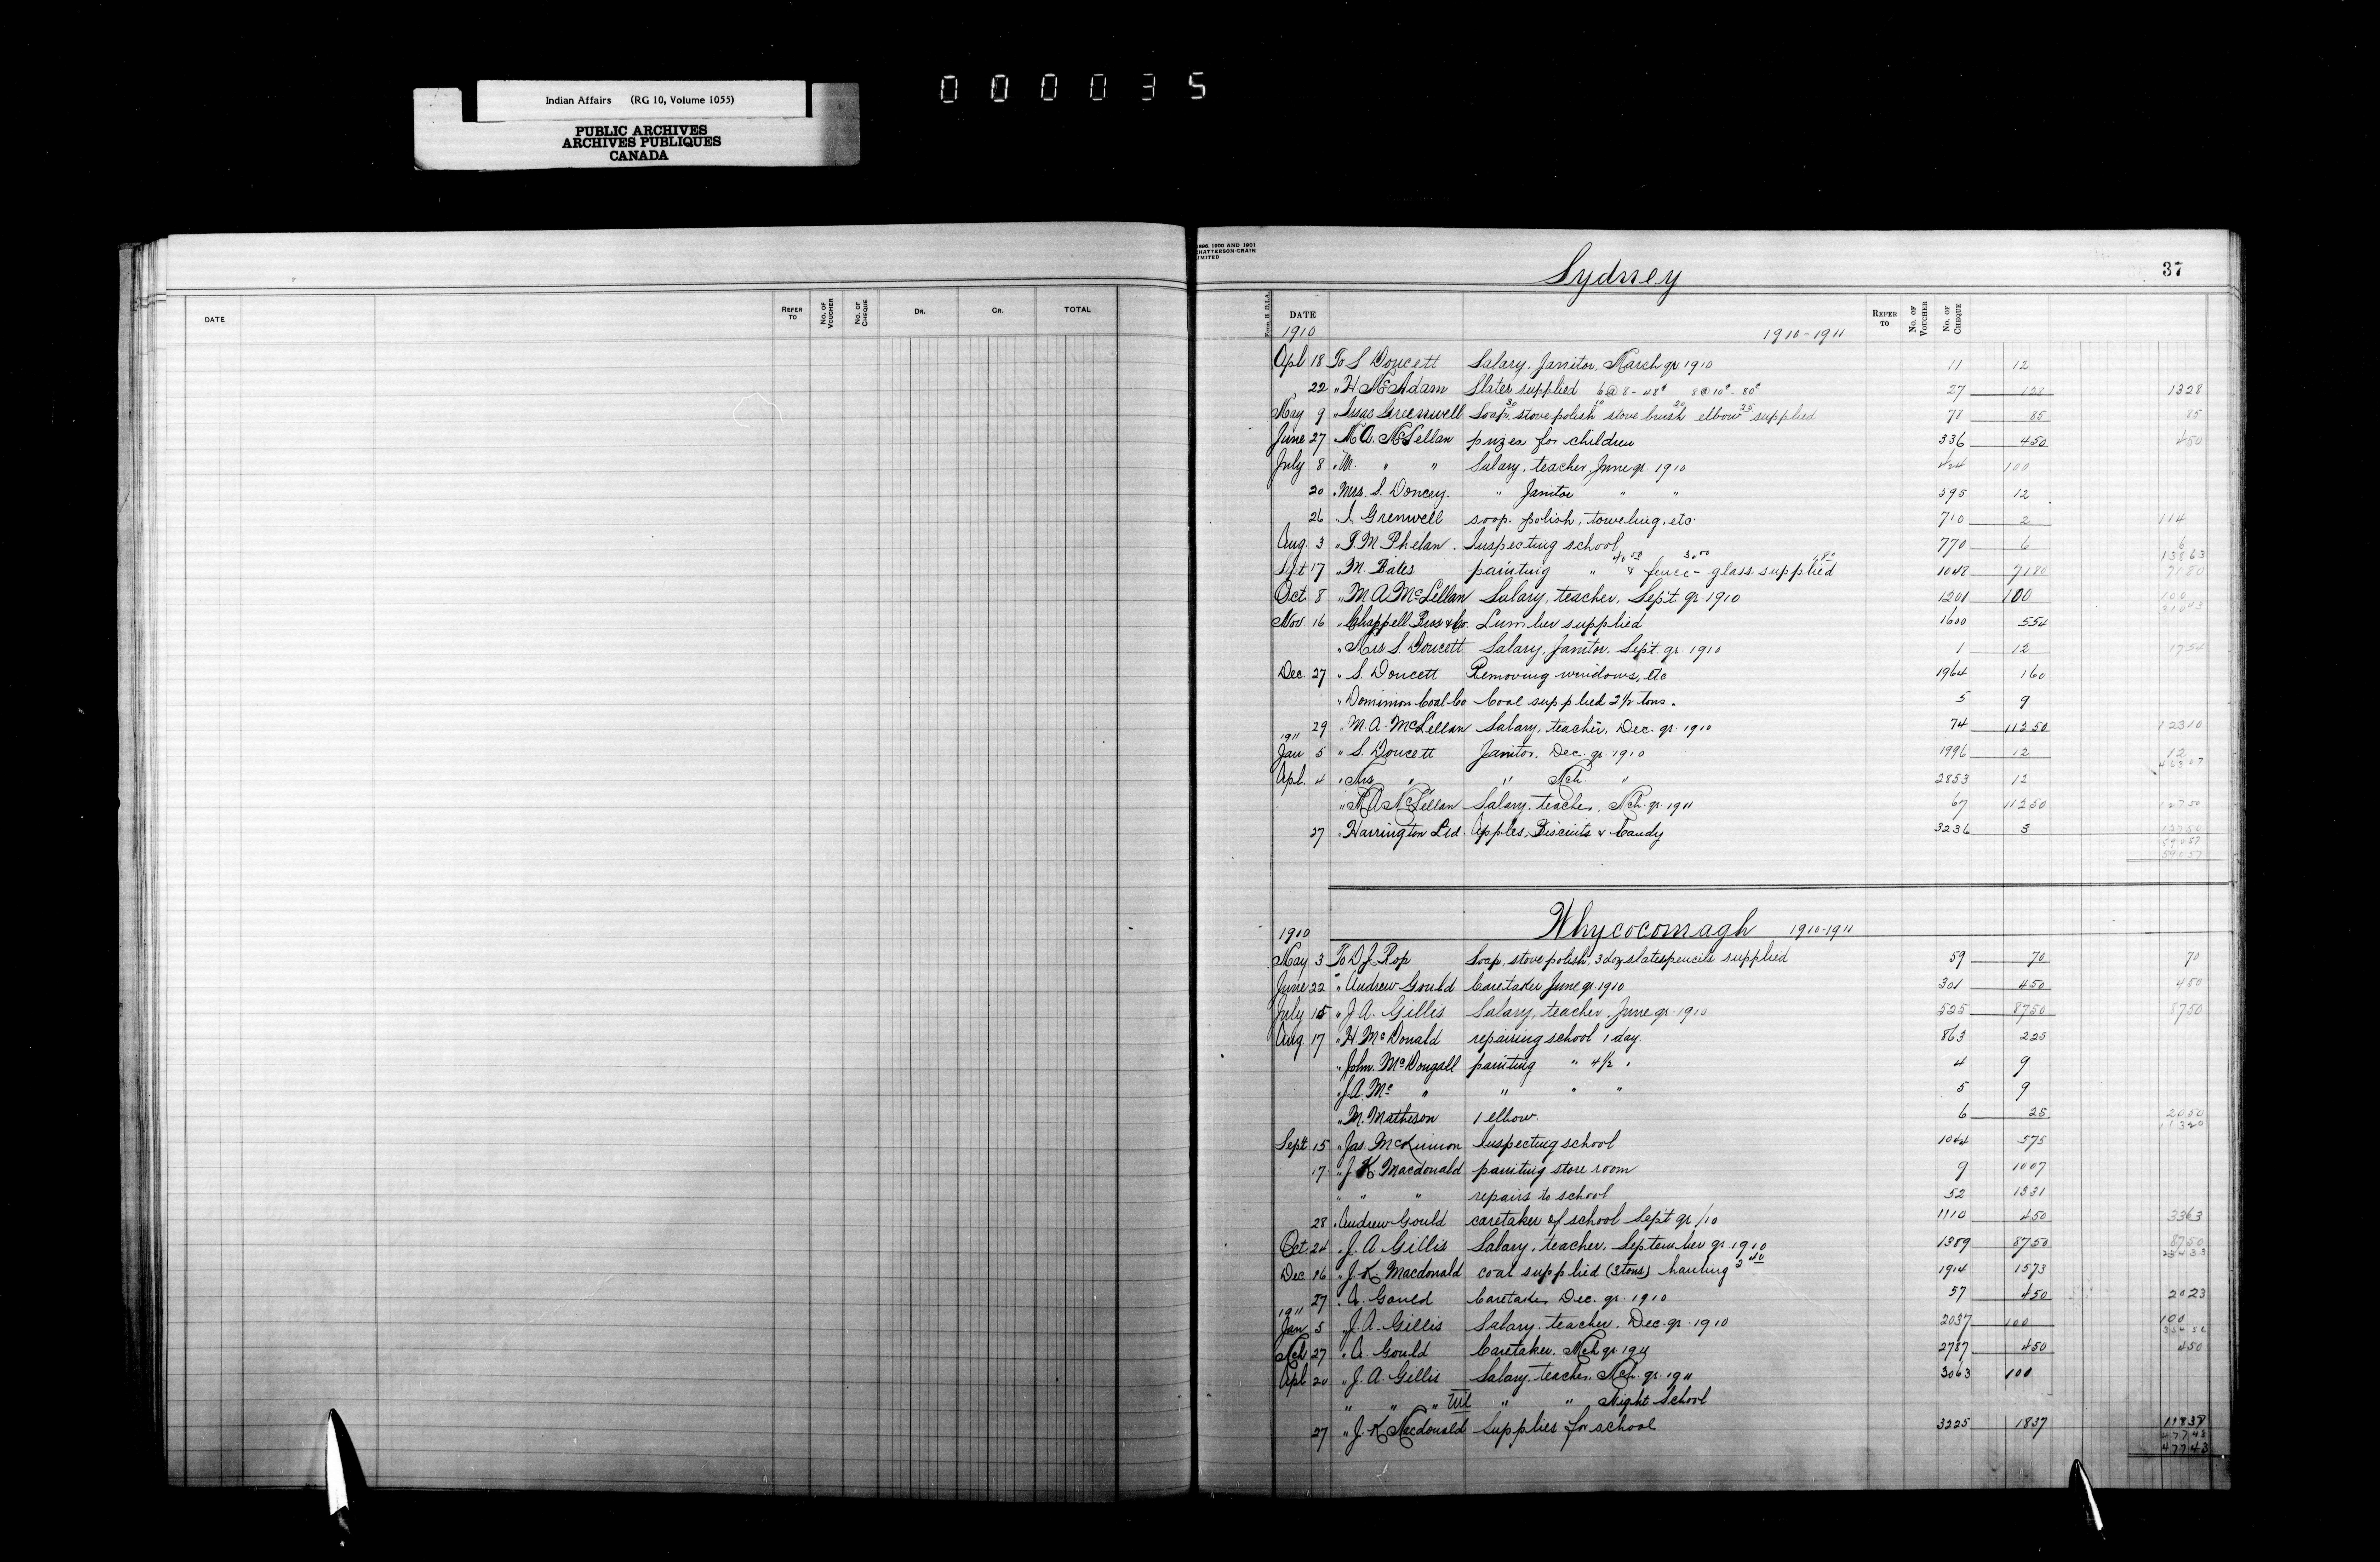 000035
Indian Affairs (RG 10, Volume 1055)
PUBLIC ARCHIVES
ARCHIVES PUBLIQUES
CANADA
DATE REFER TO No. OF VOUCHER No. OF CHEQUE DR. CR. TOTAL
1896, 1900 AND 1901
CHATTERSON-CRAIN
LIMITED
Sydney 37
Form B D.I.A. DATE REFER TO No. OF VOUCHER No. OF CHEQUE
1910 1910-1911
Apl 18 To S. Doucett Salary, Janitor, March qr. 1910 11 12
22 " H McAdam Slates supplied 6@8-48¢ 8@10¢-80¢ 27 128 1328
May 9 " Isaac Greenwell Soap 30 stove polish 10 stove brush 20 elbow 25 supplied 78 85 85
June 27 " M.A. McLellan prizes for children 336 450 450
July 8 " M. " " Salary, teacher, June qr 1910 424 100
20 " Mrs. S. Doncey. " Janitor " " 595 12
26 " I Grenwell soap, polish, toweling, etc. 710 2 114
Aug. 3 " T. M. Phelan. Inspecting school 770 6 6
13863
Sept 17 " M. Bates painting " 40 00 & fence - 30 00 glass supplied 1 80 1048 7180 7180
Oct 8 " M A McLellan Salary, teacher, Sept. qr. 1910 1201 100 100
31043
Nov. 16 " Chappell Bros & Co. Lumber supplied 1600 554
" Mrs S. Doucett Salary, Janitor, Sept. qr. 1910 1 12 1754
Dec. 27 " S. Doucett Removing windows, etc. 1964 160
" Dominion Coal Co Coal supplied 2½ tons. 5 9
29 " M. A. McLellan Salary, teacher, Dec. qr. 1910 74 11250 12310
1911
Jan 5 " S. Doucett Janitor. Dec. qr. 1910 1996 12 12
46307
Apl. 4 " Mrs " " Mch. " 2853 12
" M A McLellan Salary, teacher, Mch. qr. 1911 67 11250 12750
27 " Harrington Ltd. Apples, Biscuits & Candy 3236 3 12750
59057
59057
Whycocomagh 1910-1911
1910
May 3 To D J Rop Soap, stove polish, 3 doz slates pencils supplied 59 70 70
June 22 " Andrew Gould Caretaker June qr 1910 301 450 450
July 15 " J A. Gillis Salary, teacher, June qr. 1910 525 8750 8750
Aug 17 " H McDonald repairing school 1 day. 863 225
" John. McDougall painting " 4½ " 4 9
" J. A. Mc " " " " 5 9
" M. Matheson 1 elbow. 6 25 2050
11320
Sept 15 " Jas. McKinnon Inspecting school 1044 575
17 " J. K. Macdonald painting store room 9 1007
" " " repairs to school 52 1331
28 " Andrew Gould caretaker of school Sept qr /10 1110 450 3363
Oct. 24 " J. A Gillis Salary, teacher, September qr. 1910 1389 8750 8750
23433
Dec 16 " J. K. Macdonald coal supplied (3 tons) hauling 1914 1573
27 " A. Gould Caretaker Dec. qr. 1910 57 450 2023
1911
Jan 5 " J. A. Gillis Salary, teacher, Dec. qr. 1910 2037 100 100
35456
Mch 27 " A. Gould Caretaker. Mch qr 1911 2787 450 450
Apl 20 " J. A. Gillis Salary, teacher, Mch. qr. 1911 3063 100
" " " " " " Night School
27 " J. K Macdonald Supplies for school 3225 1837 11837
47743
47743